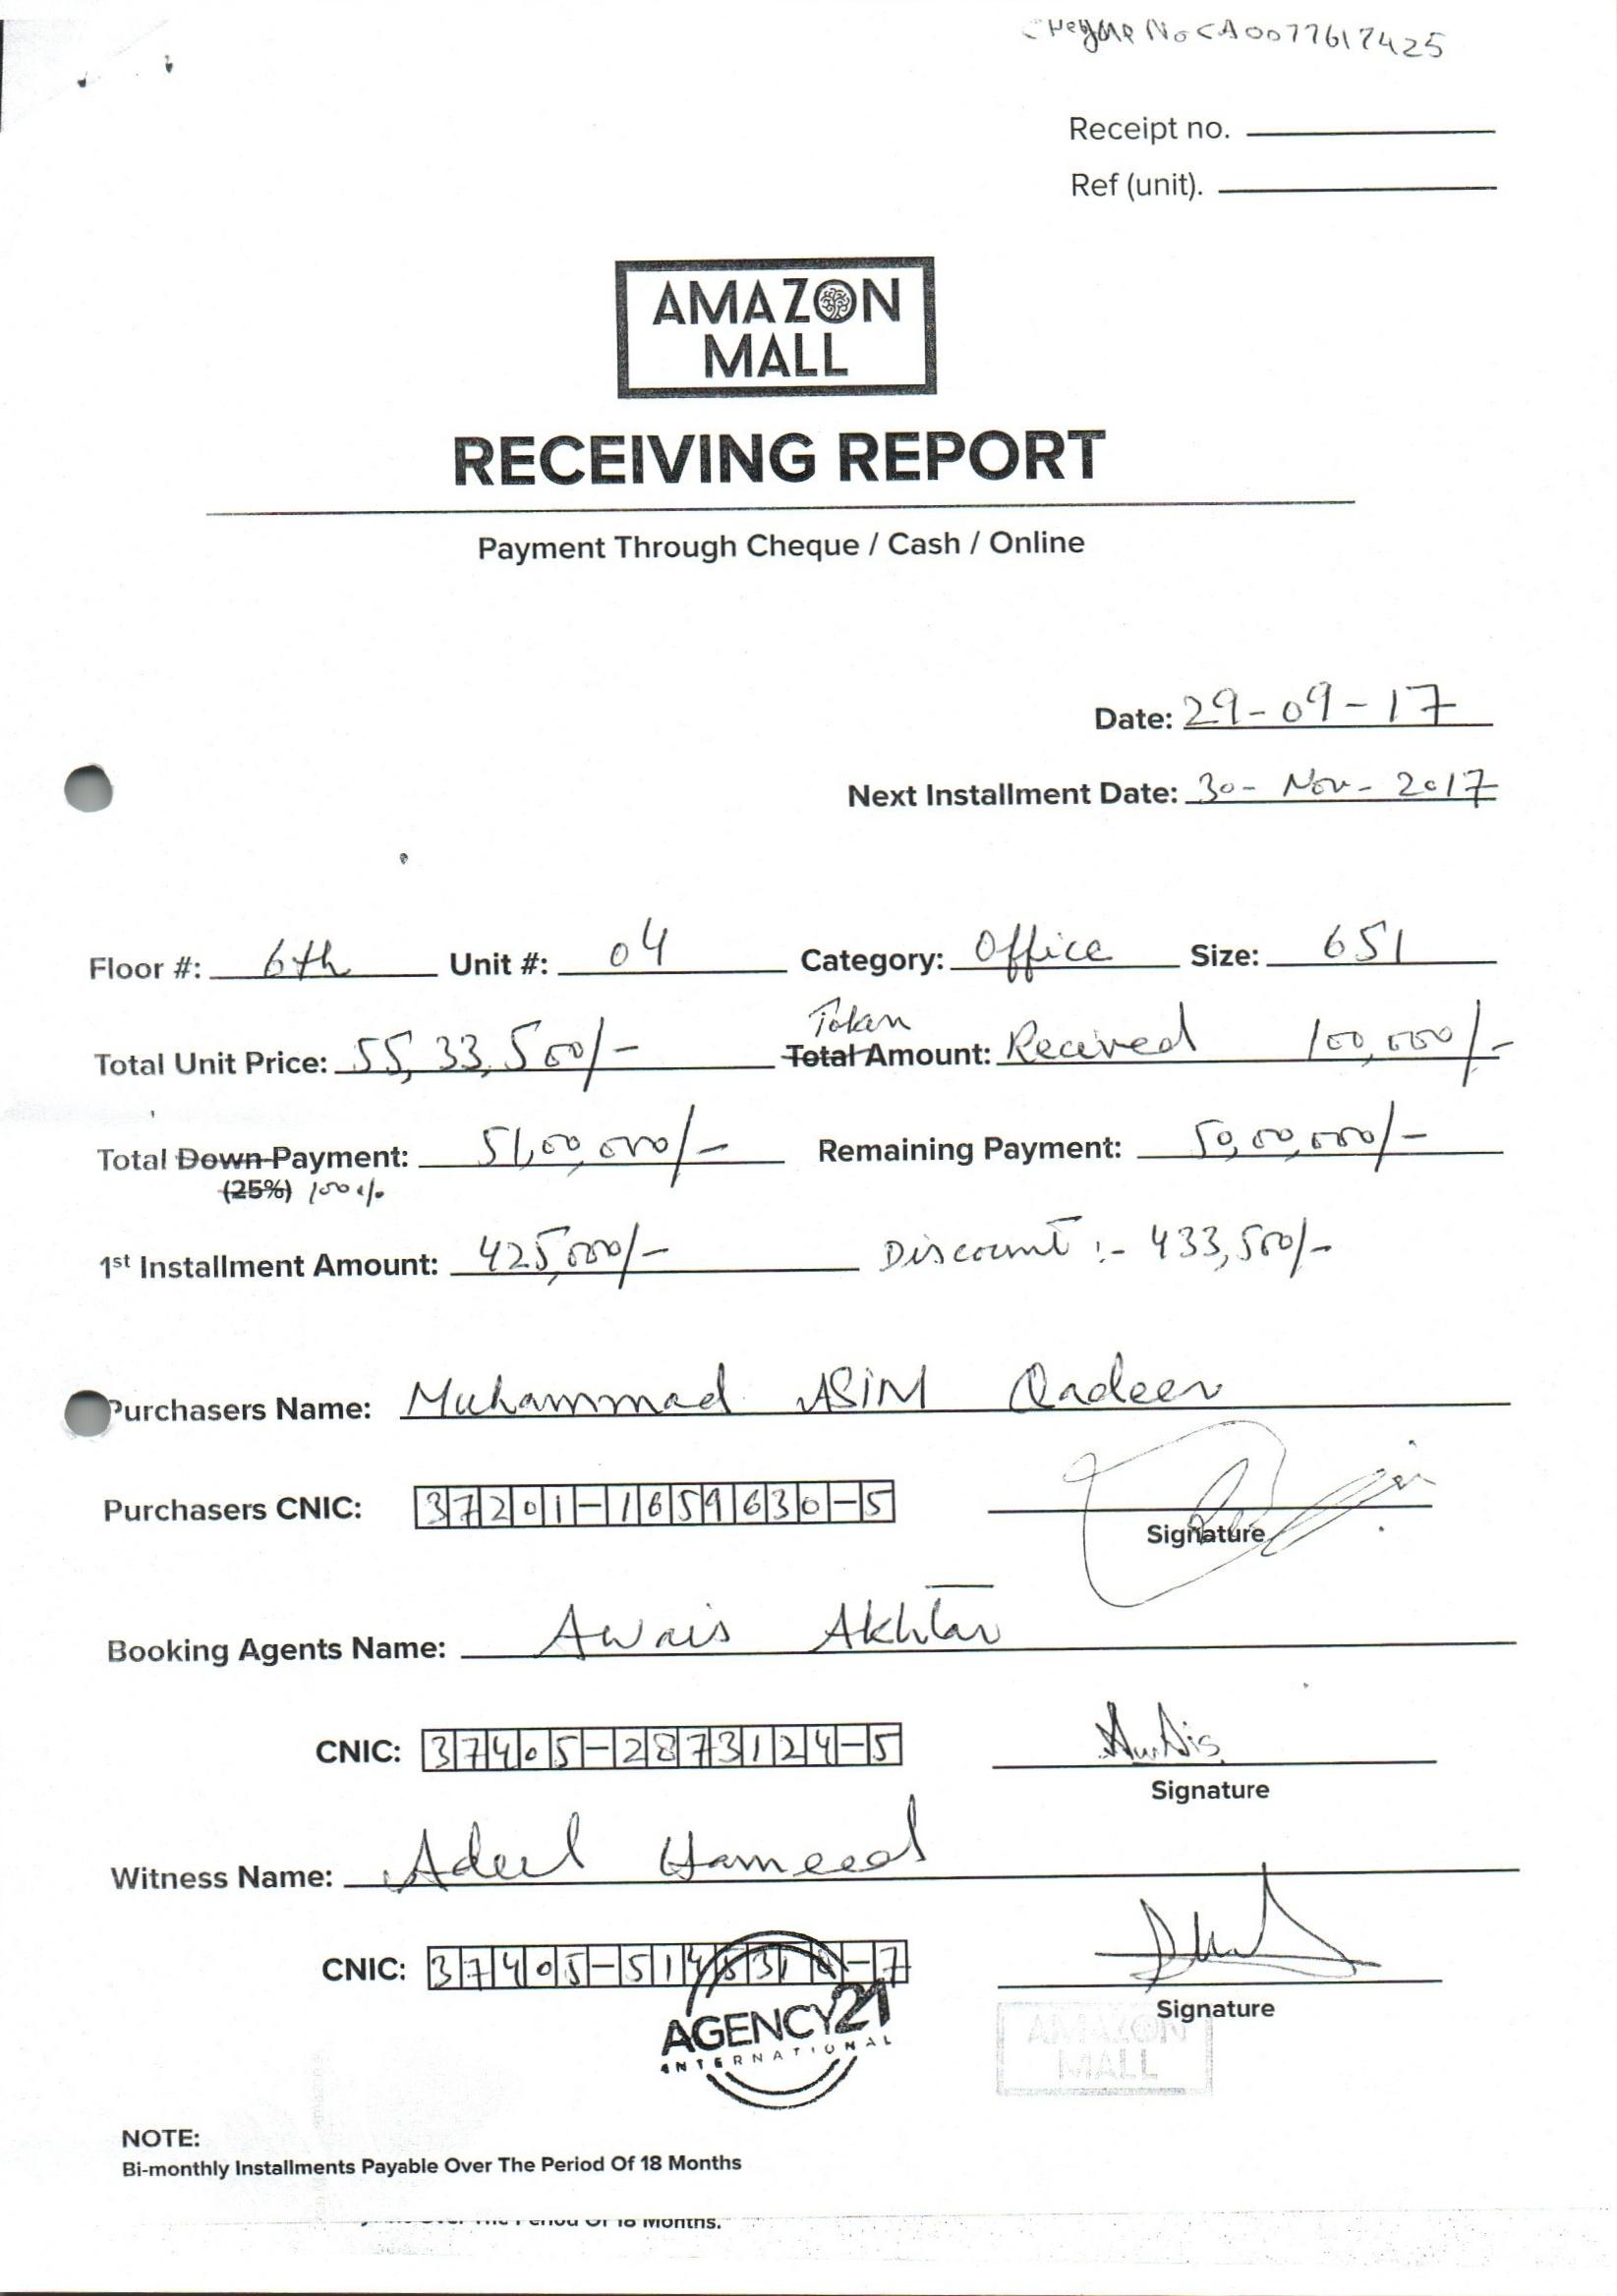 Cheque No CA0077617425
Receipt no.
Ref (unit).
AMAZON
MALL
RECEIVING REPORT
Payment Through Cheque / Cash / Online
Date: 29-09-17
Next Installment Date: 30-Nov-2017
Floor #: 6th Unit #: 04 Category: Office Size: 651
Token
Total Unit Price: 55,33,500/- Total Amount: Received 100,000/-
Total Down Payment: 51,00,000/- Remaining Payment: 50,00,000/-
(25%) 100%
1st Installment Amount: 425,000/- Discount :- 433,500/-
Purchasers Name: Muhammad ASIM Qadeer
Purchasers CNIC: 37201-1659630-5
Signature
Booking Agents Name: Awais Akhtar
CNIC: 37405-2873124-5
Signature
Witness Name: Adeel Hameed
CNIC: 37405-
Signature
AGENCY21
INTERNATIONAL
AMAZON
MALL
NOTE:
Bi-monthly Installments Payable Over The Period Of 18 Months
Over The Period Of 18 Months.